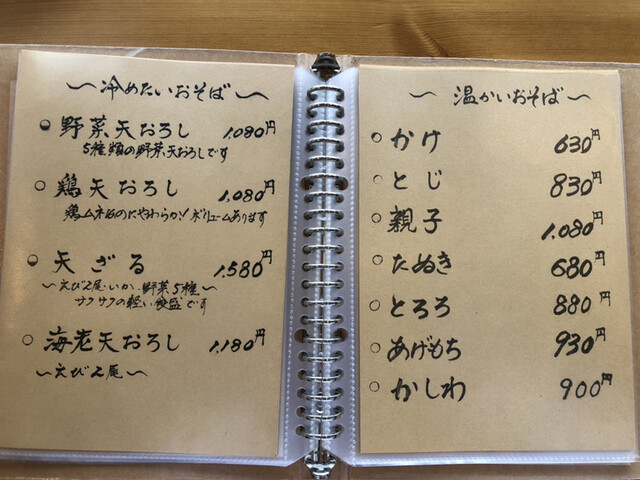 〜冷めたいおそば〜
野菜天おろし 1,080円
5種類の野菜天おろしです
鶏天おろし 1,080円
鶏ムネ肉のにやわらか！ボリュームあります
天ざる 1,580円
〜えび2尾・いか・野菜5種〜
サクサクの軽い食感です
海老天おろし 1,180円
〜えび2尾〜
〜温かいおそば〜
かけ 630円
とじ 830円
親子 1,080円
たぬき 680円
とろろ 880円
あげもち 930円
かしわ 900円